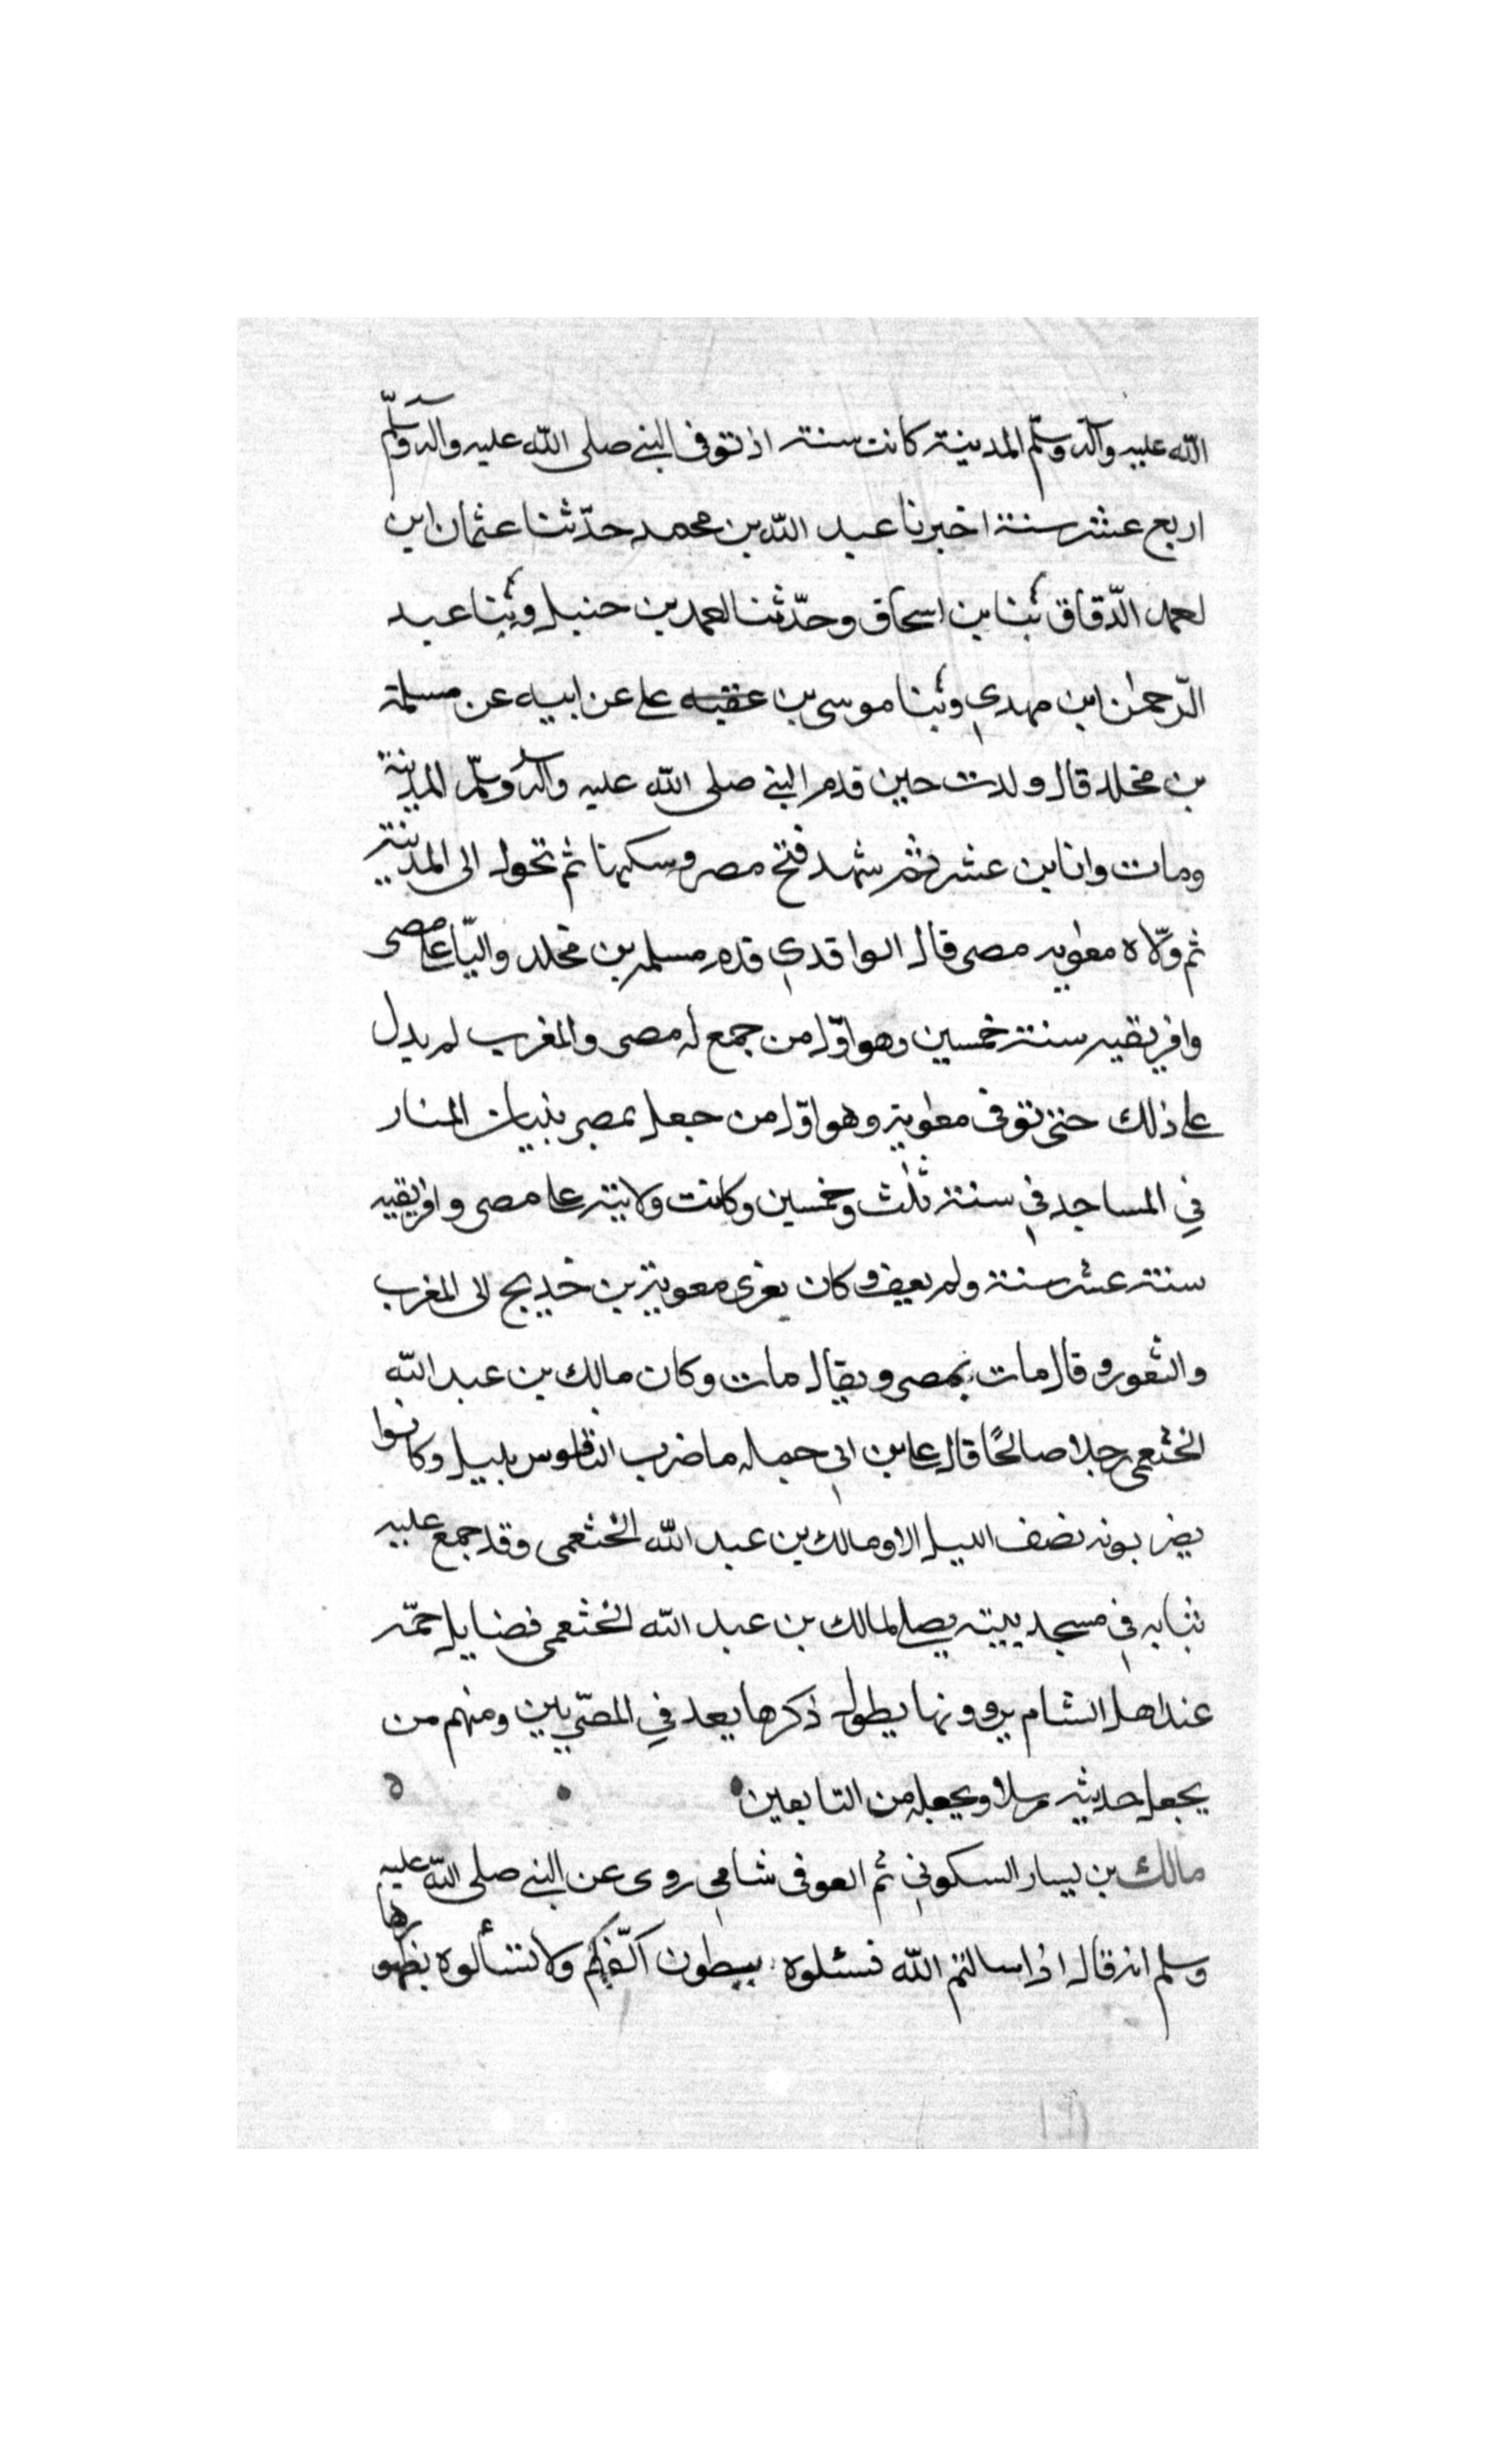 الله عليه وآله وسلّم المدينة كانت سنته اذ توفى النبي صلى الله عليه وآله وسلّم
اربع عشر سنة اخبرنا عبد الله بن محمد حدّثنا عثمان ابن
احمد الدّقاق ثنا بن اسحاق وحدّثنا احمد بن حنبل وثنا عبد
الرّحمن ابن مهدي وثنا موسى بن عقبه على عن ابيه عن مسلمة
بن مخلد قال ولدت حين قدم النبي صلى الله عليه وآله وسلّم المدينة
ومات وانا بن عشر ثم شهد فتح مصر وسكنها ثم تحول الى المدينة
ثم ولّاه معٰويه مصر قال الواقدي قدم مسلمه بن مخلد واليًا على مصر
وافريقيه سنة خمسين وهو اوّل من جمع له مصر والمغرب لم يدل
على ذلك حتى توفى معٰوية وهو اوّل من جعل بمصر بنيان المنار
في المساجد في سنة ثلٰث وخمسين وكانت ولايته على مصر وافريقيه
ستة عشر سنة ولم يعف وكان يغزى معوية بن خديج الى المغرب
والثغور وقال مات بمصر ويقال مات وكان مالك بن عبد الله
الخثعمى رجلا صالحًا قال على بن ابي حمله ما ضرب الناقوس بليل وكانوا
يضربونه نصف الليل الا ومالك بن عبد الله الخثعمى وقد جمع عليه
ثيابه في مسجد بيته يصلى لمالك بن عبد الله الخثعمى فضايل جمّه
عند اهل الشام يروونها يطول ذكرها يعد في المصّريين ومنهم من
يجعل حديثه مرسلا ويجعله من التابعين ه
مالك بن يسار السكوني ثم العوفى شامي روى عن النبي صلى الله عليه
وسلم انه قال اذا سالتم الله فسئلوه ببطون اكفّكم ولا تسألوه بظهورها